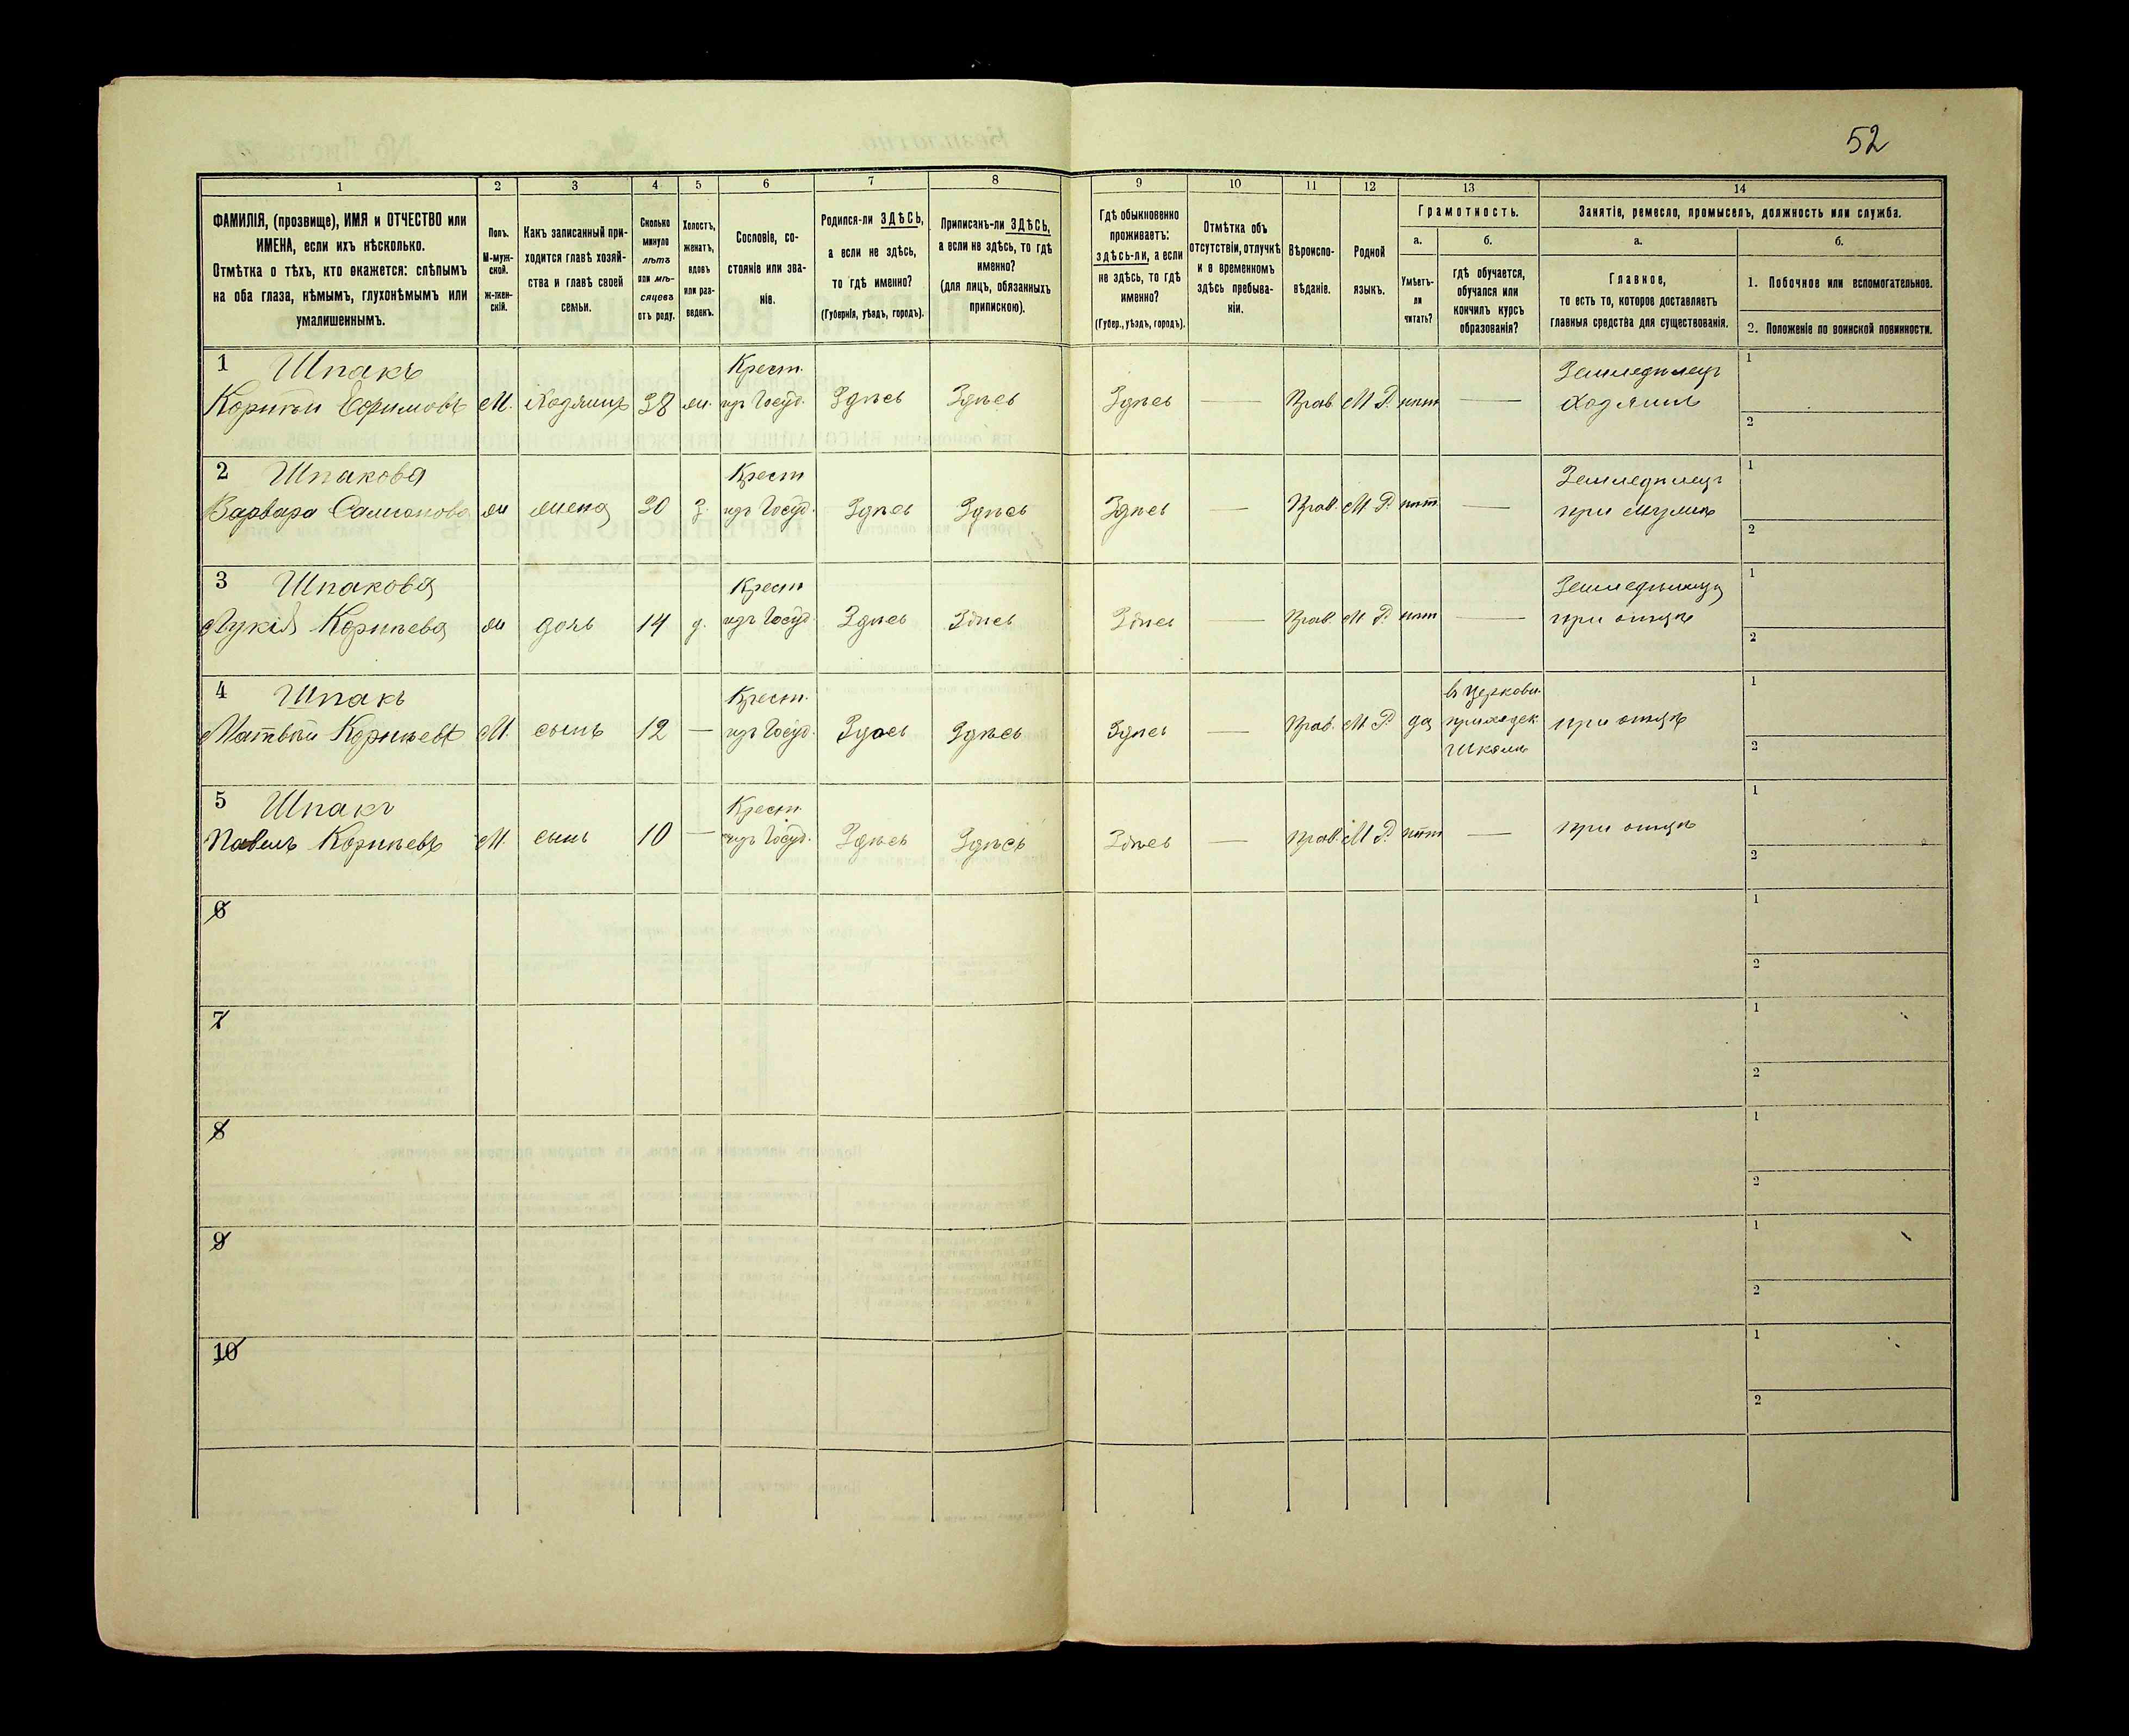 52
1 2 3 4 5 6 7 8 9 10 11 12 13 14
ФАМИЛІЯ, (прозвище), ИМЯ и ОТЧЕСТВО или
ИМЕНА, если ихъ нѣсколько.
Отмѣтка о тѣхъ, кто окажется: слѣпымъ
на оба глаза, нѣмымъ, глухонѣмымъ или
умалишеннымъ.
Полъ.
М-муж-
ской.
ж-жен-
скій.
Какъ записанный при-
ходится главѣ хозяй-
ства и главѣ своей
семьи.
Сколько
минуло
лѣтъ
или мѣ-
сяцевъ
отъ роду.
Холостъ,
женатъ,
вдовъ
или раз-
веденъ.
Сословіе, со-
стояніе или зва-
ніе.
Родился-ли ЗДѢСЬ,
а если не здѣсь,
то гдѣ именно?
(Губернія, уѣздъ, городъ).
Приписанъ-ли ЗДѢСЬ,
а если не здѣсь, то гдѣ
именно?
(для лицъ, обязанныхъ
припискою).
Гдѣ обыкновенно
проживаетъ:
здѣсь-ли, а если
не здѣсь, то гдѣ
именно?
(Губер., уѣздъ, городъ).
Отмѣтка объ
отсутствіи, отлучкѣ
и о временномъ
здѣсь пребыва-
ніи.
Вѣроиспо-
вѣданіе.
Родной
языкъ.
Грамотность.
а.
Умѣетъ-
ли
читать?
б.
гдѣ обучается,
обучался или
кончилъ курсъ
образованія?
Занятіе, ремесло, промыселъ, должность или служба.
а.
Главное,
то есть то, которое доставляетъ
главныя средства для существованія.
б.
1. Побочное или вспомогательное.
2. Положеніе по воинской повинности.
1 Шпакъ Крест. Земледѣлец 1
Корнѣй Ефимовъ М. Хозяинъ 38 ж. изъ Госуд. Здѣсь Здѣсь Здѣсь — Прав. М Р. нѣт — Хозяинъ
2
2 Шпакова Крест Земледѣлец 1
Варвара Самсонова ж жена 30 з. изъ Госуд. Здѣсь Здѣсь Здѣсь — Прав. М Р. нѣт — при мужѣ
2
3 Шпакова Крест Земледѣлица 1
Лукія Корнѣева ж дочь 14 д. изъ Госуд. Здѣсь Здѣсь Здѣсь — Прав. М Р. нѣт — при отцѣ
2
4 Шпакъ Крест. въ Церковн. 1
Матвѣй Корнѣевъ М. сынъ 12 — изъ Госуд. Здѣсь Здѣсь Здѣсь — Прав. М Р. да приходск. при отцѣ
школѣ 2
5 Шпакъ Крест. 1
Павелъ Корнѣевъ М. сынъ 10 — изъ Госуд. Здѣсь Здѣсь Здѣсь — Прав. М Р. нѣт — при отцѣ
2
6 1
2
7 1
2
8 1
2
9 1
2
10 1
2